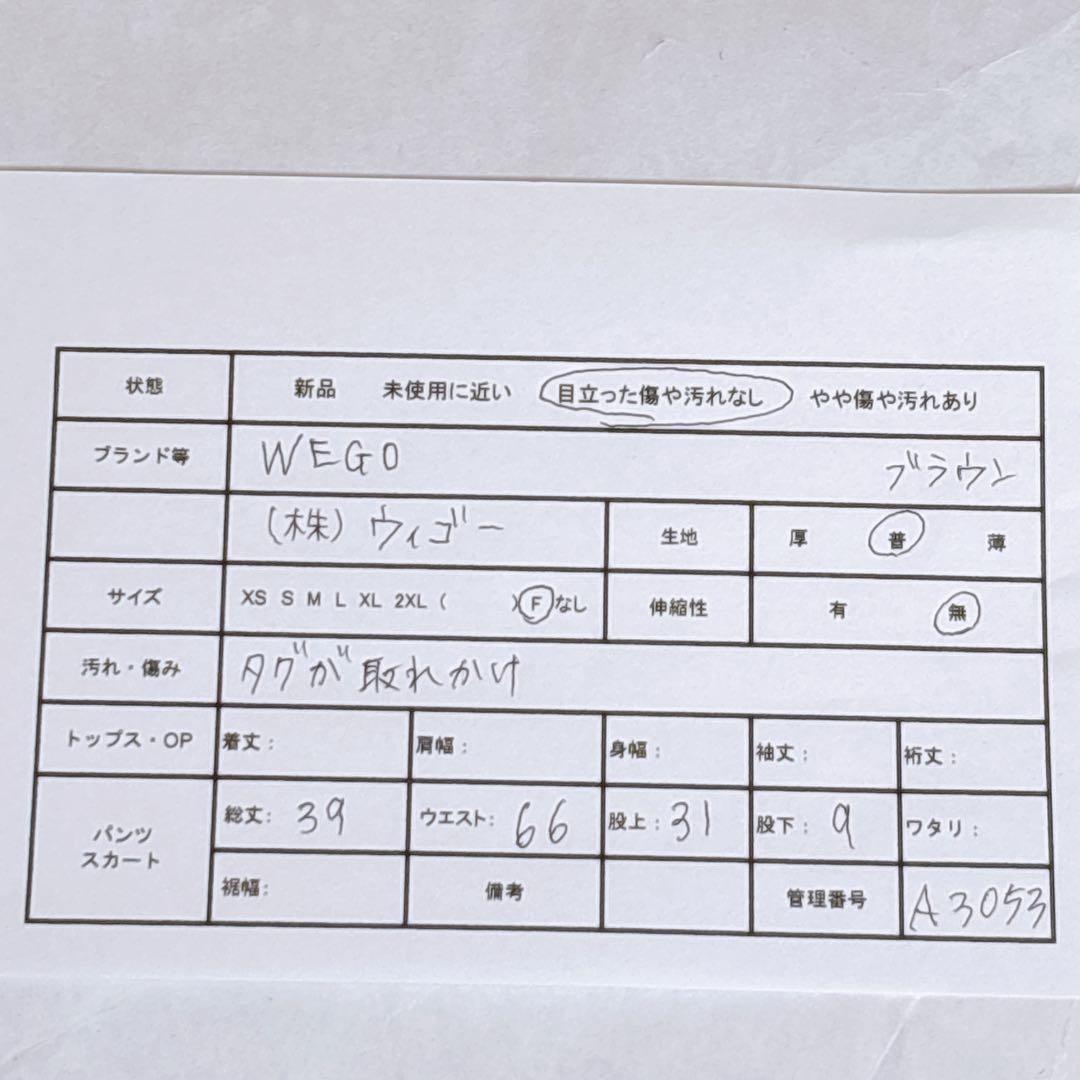 状態 新品 未使用に近い 目立った傷や汚れなし やや傷や汚れあり
ブランド等 WEGO ブラウン
(株)ウィゴー 生地 厚 普 薄
サイズ XS S M L XL 2XL ( )F なし 伸縮性 有 無
汚れ・傷み タグが取れかけ
トップス・OP 着丈: 肩幅: 身幅: 袖丈: 裄丈:
パンツ スカート 総丈: 39 ウエスト: 66 股上: 31 股下: 9 ワタリ:
裾幅: 備考 管理番号 A3053